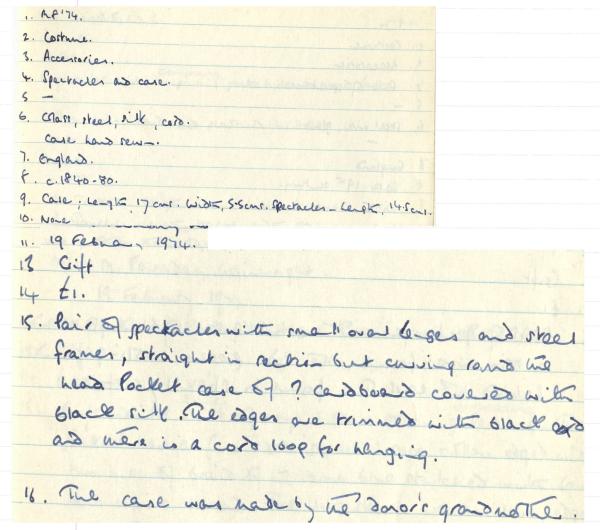 1. RP '74.
2. Costume.
3. Accessories.
4. Spectacles and case.
5 —
6. Glass, steel, silk, cord.
Case hand sewn.
7. England.
8. c.1840-80.
9. Case; Length, 17 cms. Width, 5.5 cms. Spectacles - Length, 14.5 cms.
10. None
11. 19 February, 1974.
13 Gift
14 £1.
15. Pair of spectacles with small oval lenses and steel
frames, straight in section but curving round the
head Pocket case of ? cardboard covered with
black silk. The edges are trimmed with black cord
and there is a cord loop for hanging.
16. The case was made by the donor's grandmother.